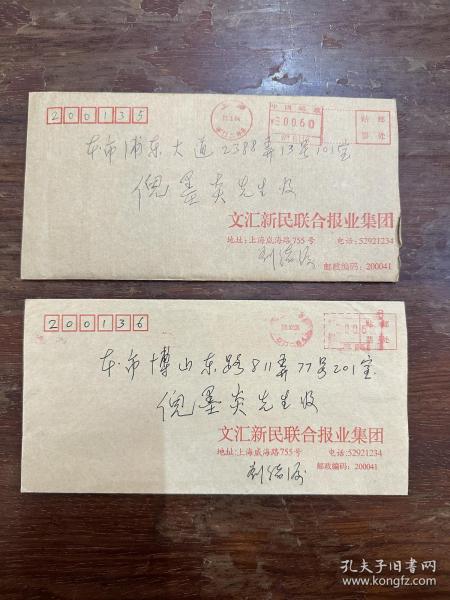 200135
中国邮政
0060
贴 邮
票 处
本市浦东大道2388弄13号101室
倪墨炎先生收
文汇新民联合报业集团
地址:上海威海路755号 电话:52921234
邮政编码:200041
200136
贴 邮
票 处
本市博山东路811弄77号201室
倪墨炎先生收
文汇新民联合报业集团
地址:上海威海路755号 电话:52921234
邮政编码:200041
孔夫子旧书网
www.kongfz.com